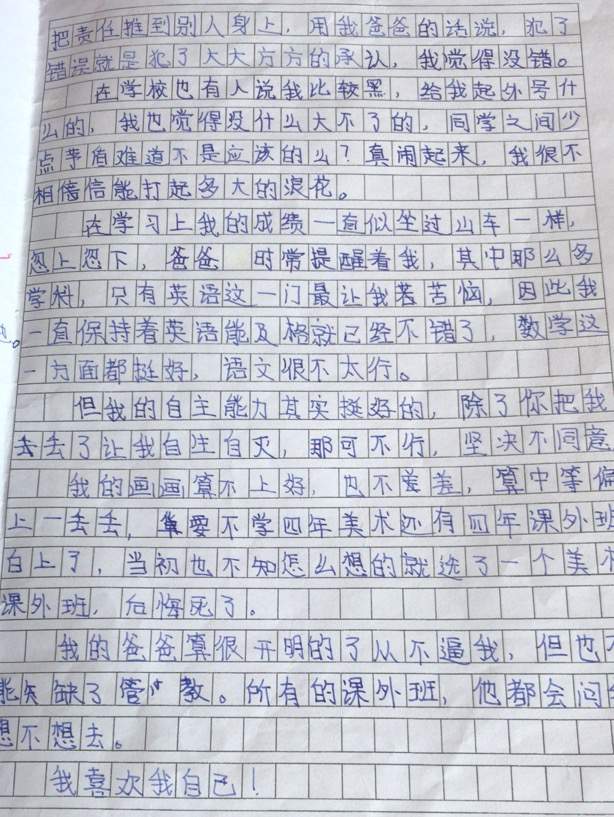 把责任推到别人身上，用我爸爸的话说，犯了
错误就是犯了大大方方的承认，我觉得没错。
在学校也有人说我比较黑，给我起外号什
么的，我也觉得没什么大不了的，同学之间少
点矛盾难道不是应该的么？真闹起来，我很不
相信信能打起多大的浪花。
在学习上我的成绩一直似坐过山车一样，
忽上忽下，爸爸 时常提醒着我，其中那么多
学科，只有英语这一门最让我若苦恼，因此我
一直保持着英语能及格就已经不错了，数学这
一方面都挺好，语文很不太行。
但我的自主能力其实挺好的，除了你把我
丢去了让我自生自灭，那可不行，坚决不同意
我的画画算不上好，也不差差，算中等偏
上一丢丢，要不学四年美术还有四年课外班
白上了，当初也不知怎么想的就选了一个美术
课外班，后悔死了。
我的爸爸算很开明的了从不逼我，但也不
能失缺了管教。所有的课外班，他都会问
想不想去。
我喜欢我自己！